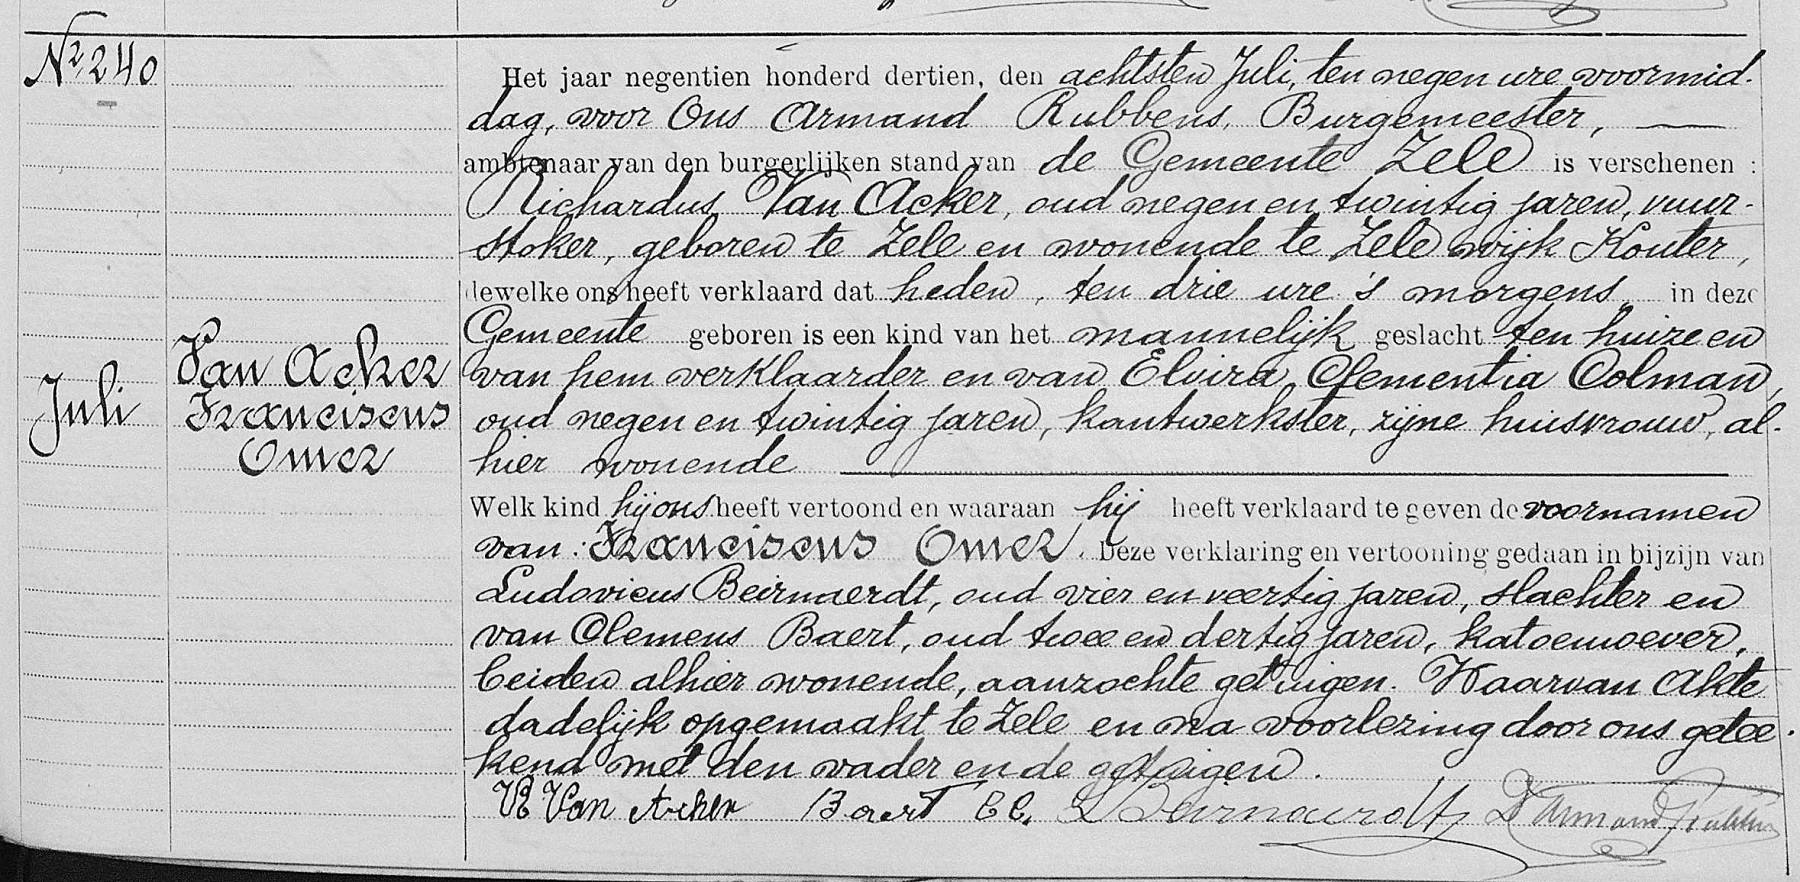 Nr 240
Juli
Van Acker
Franciscus
Omer
Het jaar negentien honderd dertien, den achtsten Juli, ten negen ure voormid-
dag, voor Ons Armand Rubbens, Burgemeester,
ambtenaar van den burgerlijken stand van de Gemeente Zele is verschenen :
Richardus Van Acker, oud negen en twintig jaren, vuur-
stoker, geboren te Zele en wonende te Zele wijk Kouter,
dewelke ons heeft verklaard dat heden, ten drie ure 's morgens, in deze
Gemeente geboren is een kind van het mannelijk geslacht ten huize en
van hem verklaarder en van Elvira Clementia Colman,
oud negen en twintig jaren, kantwerkster, zijne huisvrouw, al-
hier wonende
Welk kind hij ons heeft vertoond en waaraan hij heeft verklaard te geven de voornamen
van : Franciscus Omer. Deze verklaring en vertooning gedaan in bijzijn van
Ludovicus Beirnaerdt, oud vier en veertig jaren, slachter en
van Clemens Baert, oud twee en dertig jaren, katoenwever,
beiden alhier wonende, aanzochte getuigen. Waarvan Akte
dadelijk opgemaakt te Zele en na voorlezing door ons getee-
kend met den vader en de getuigen.
Van Acker Baert CC. L Beirnaerdt Dr Armand Rubbens